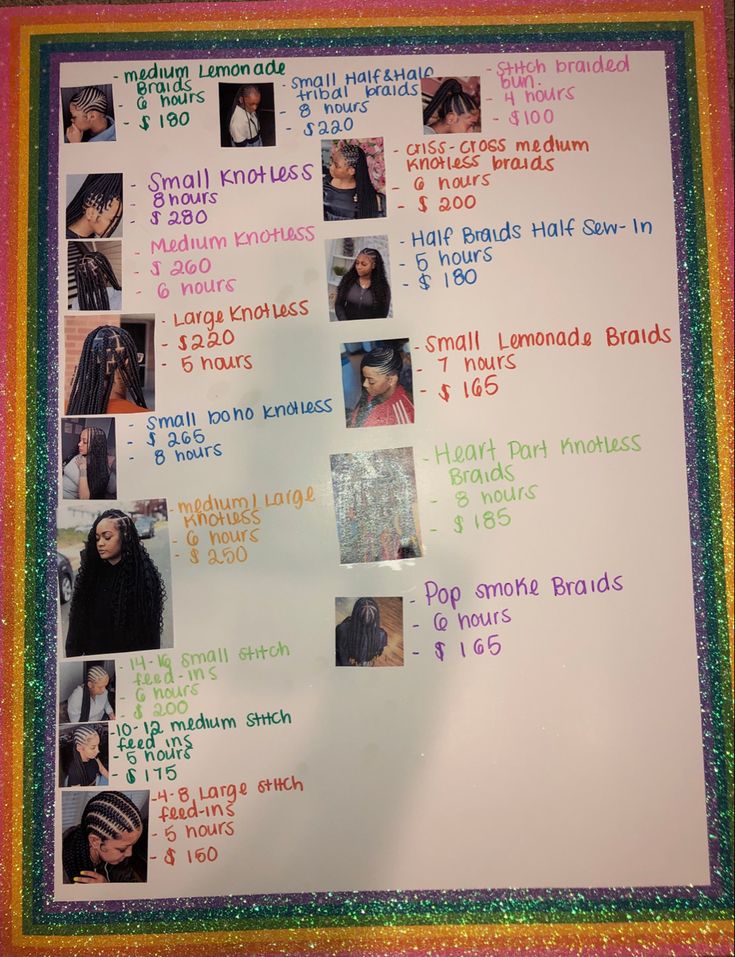 - medium Lemonade
Braids
- 6 hours
- $ 180
- Small Half & Half
tribal braids
- 8 hours
- $220
- Stitch braided
bun.
- 4 hours
- $100
- Small Knotless
- 8 hours
- $ 280
- criss-cross medium
Knotless braids
- 6 hours
- $ 200
- Medium Knotless
- $ 260
- 6 hours
- Half Braids Half Sew-In
- 5 hours
- $ 180
- Large Knotless
- $220
- 5 hours
- Small Lemonade Braids
- 7 hours
- $ 165
- Small boho knotless
- $ 265
- 8 hours
- Heart Part Knotless
Braids
- 8 hours
- $185
- medium/Large
Knotless
- 6 hours
- $ 250
- Pop smoke Braids
- 6 hours
- $ 165
- 14-16 small stitch
feed-ins
- 6 hours
- $ 200
- 10-12 medium stitch
feed ins
- 5 hours
- $ 175
- 4-8 Large stitch
feed-ins
- 5 hours
- $ 150